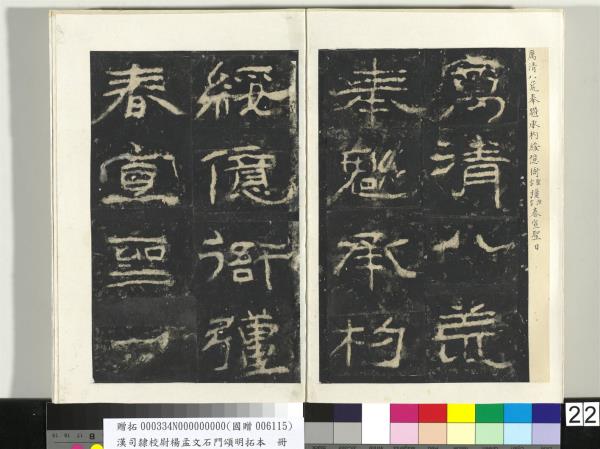 厲清八荒奉魁承杓綏億衙彊春宣聖
厲清八荒
奉魁承杓
綏億衙彊
春宣聖一
22
贈拓 000334N000000000(國贈 006115)
漢司隸校尉楊孟文石門頌明拓本 冊
8